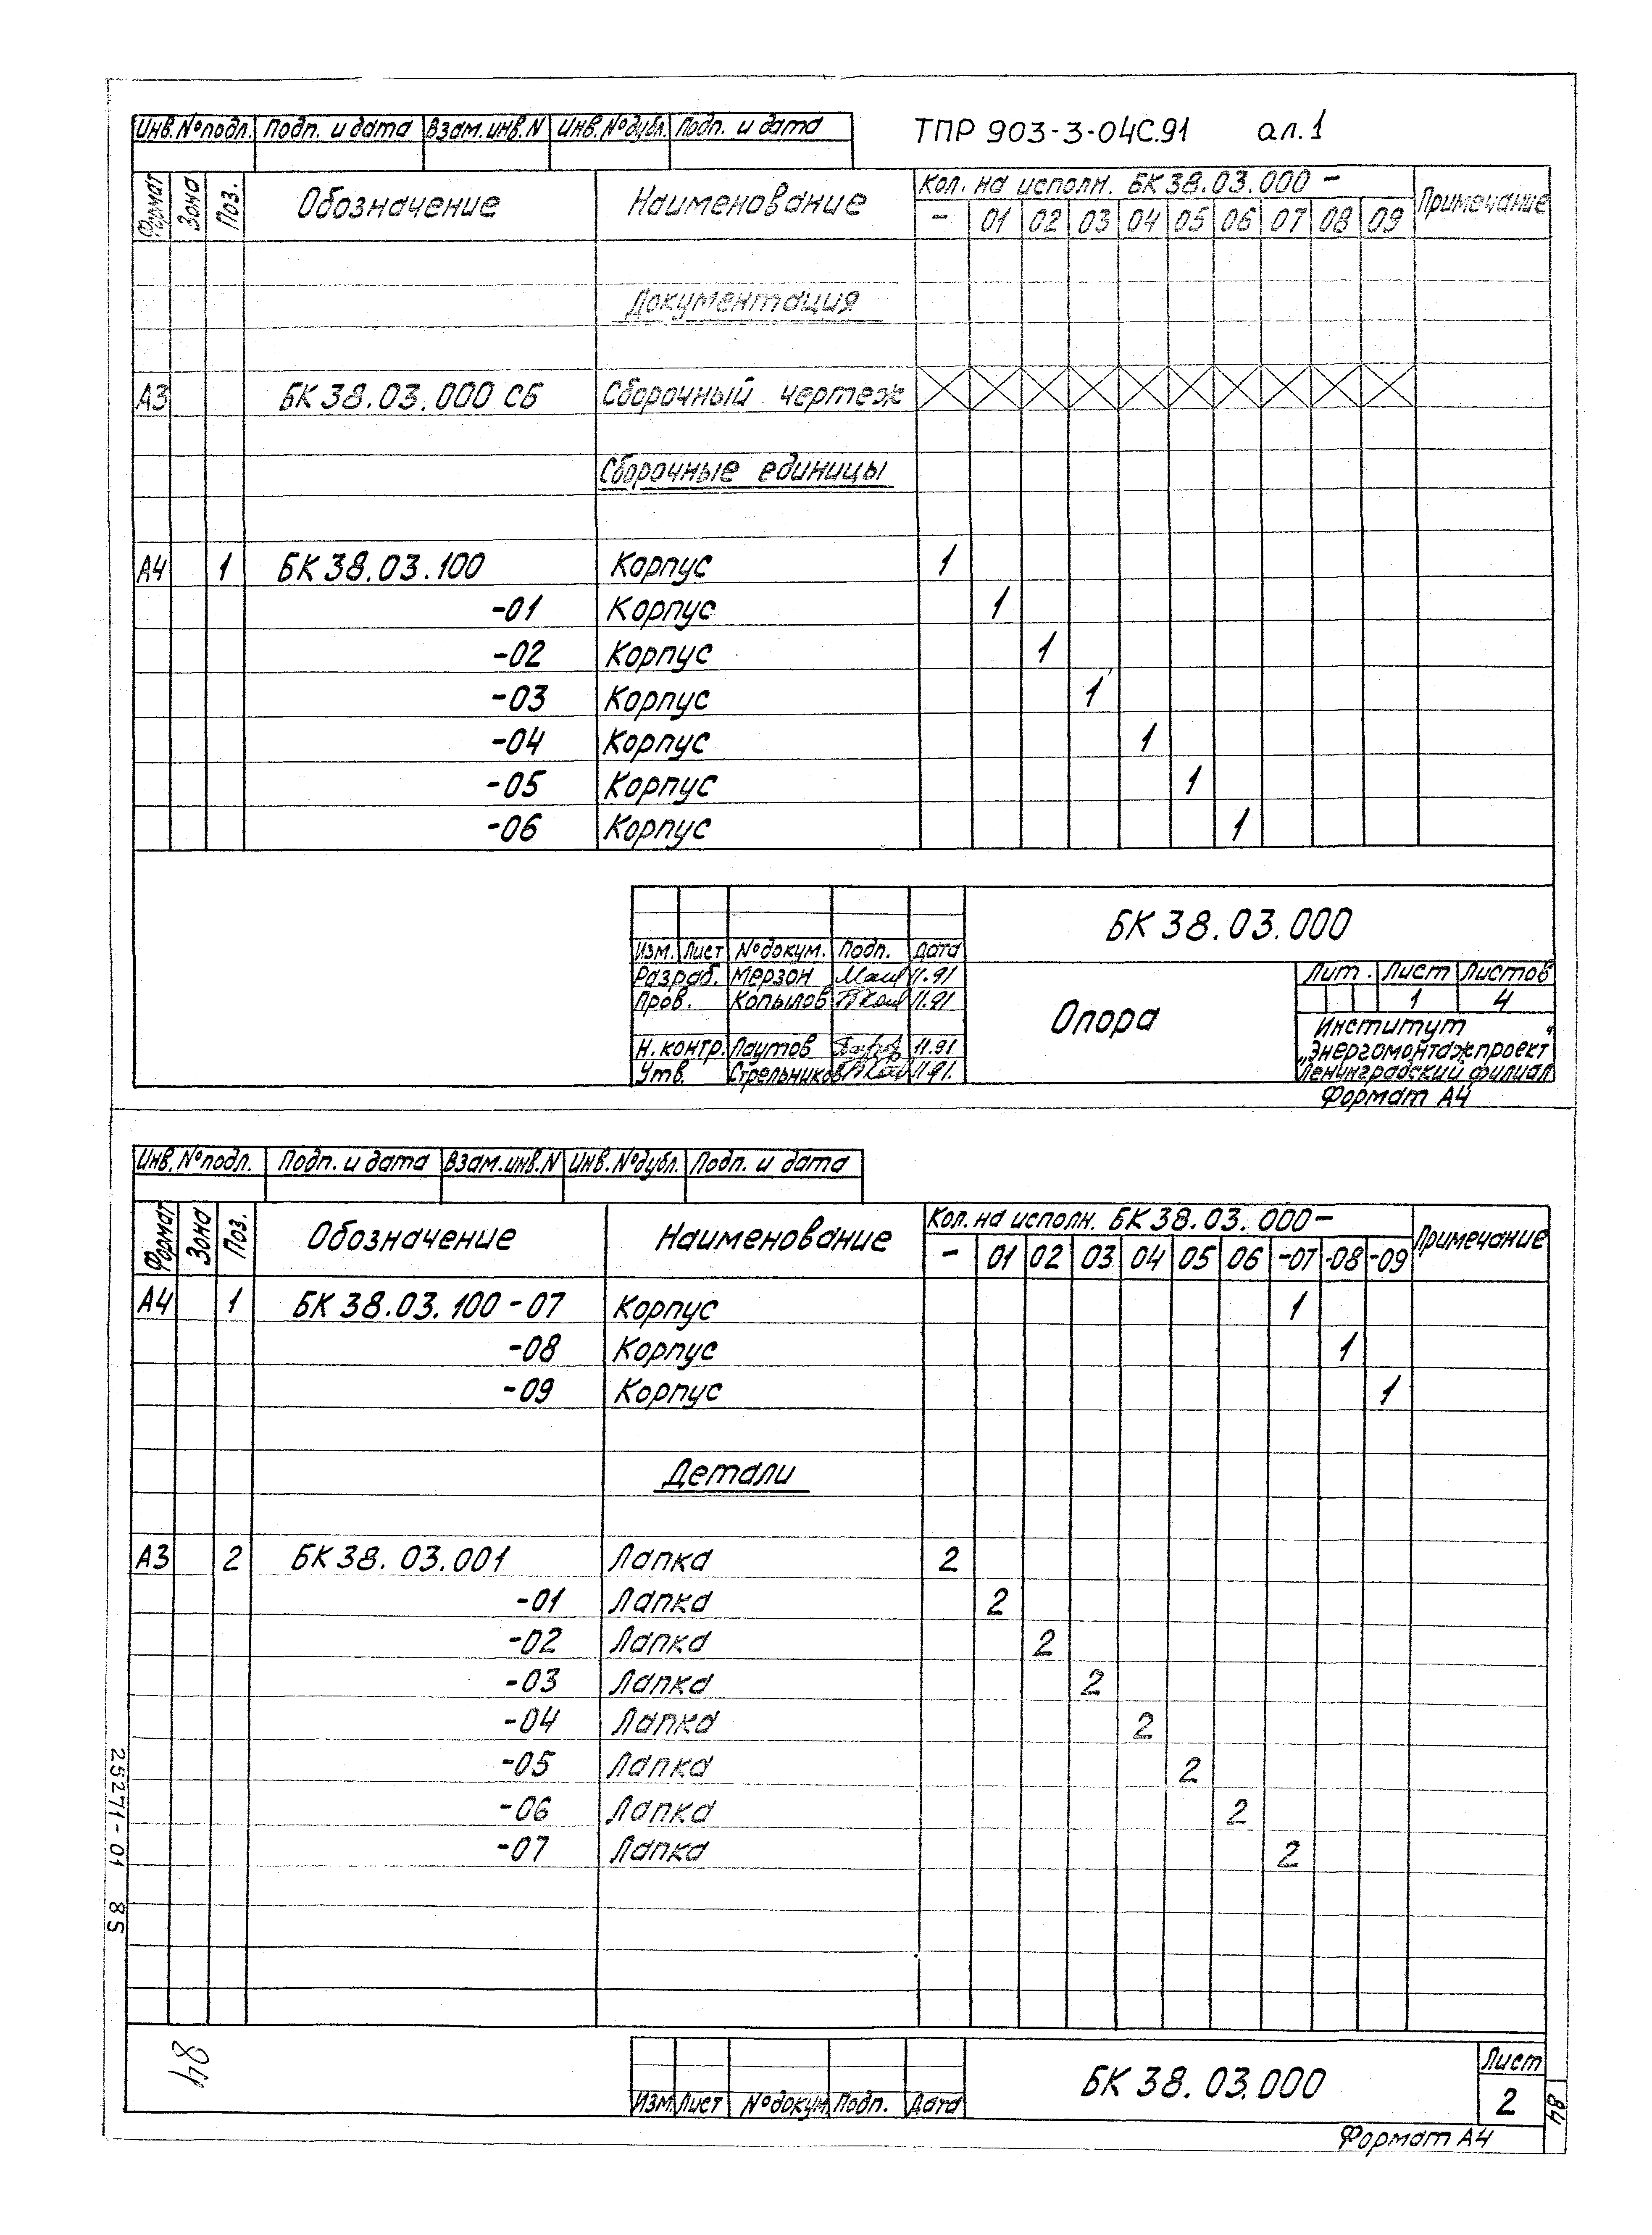 ТПР 903-3-04С.91 ал.1
Инв.№подл. Подп. и дата Взам.инв.N Инв.№дубл. Подп. и дата
Формат Зона Поз. Обозначение Наименование Кол. на исполн. БК38.03.000 – Примечание
– 01 02 03 04 05 06 07 08 09
Документация
А3 БК38.03.000 СБ Сборочный чертеж
Сборочные единицы
А4 1 БК38.03.100 Корпус 1
-01 Корпус 1
-02 Корпус 1
-03 Корпус 1
-04 Корпус 1
-05 Корпус 1
-06 Корпус 1
БК38.03.000
Изм. Лист №докум. Подп. Дата
Разраб. Мерзон 11.91
Пров. Копылов 11.91
Н.контр. Паутов 11.91
Утв. Стрельников 11.91.
Опора
Лит. Лист Листов
1 4
Институт
„Энергомонтажпроект"
Ленинградский филиал
Формат А4
Инв.№подл. Подп. и дата Взам.инв.N Инв.№дубл. Подп. и дата
Формат Зона Поз. Обозначение Наименование Кол. на исполн. БК38.03.000– Примечание
– 01 02 03 04 05 06 -07 -08 -09
А4 1 БК38.03.100-07 Корпус 1
-08 Корпус 1
-09 Корпус 1
Детали
А3 2 БК38.03.001 Лапка 2
-01 Лапка 2
-02 Лапка 2
-03 Лапка 2
-04 Лапка 2
-05 Лапка 2
-06 Лапка 2
-07 Лапка 2
25271-01 85
84
Изм. Лист №докум. Подп. Дата
БК38.03.000
Лист
2
84
Формат А4